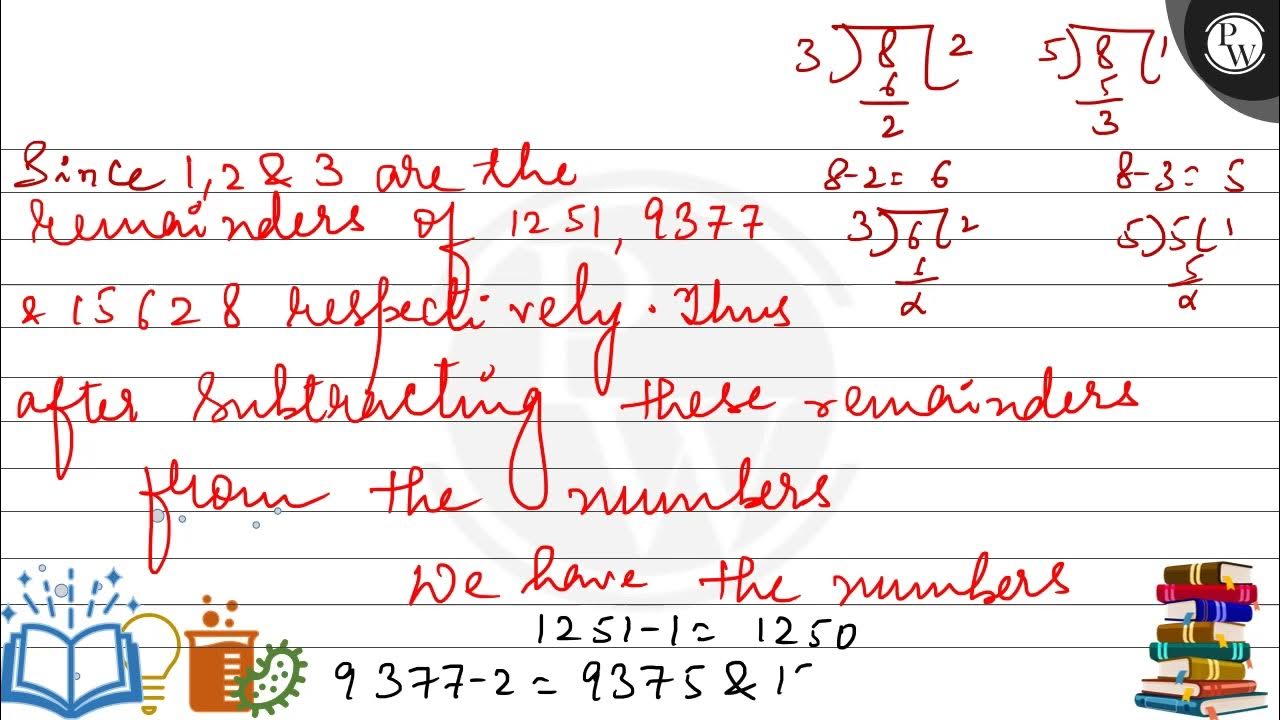 3)8(2
6
2
8-2=6
3)6(2
6
α
5)8(1
5
3
8-3=5
5)5(1
5
α
PW
Since 1,2 & 3 are the
remainders of 1251, 9377
& 15628 respectively. Thus
after subtracting these remainders
from the numbers
We have the numbers
1251-1= 1250
9377-2= 9375 & 1